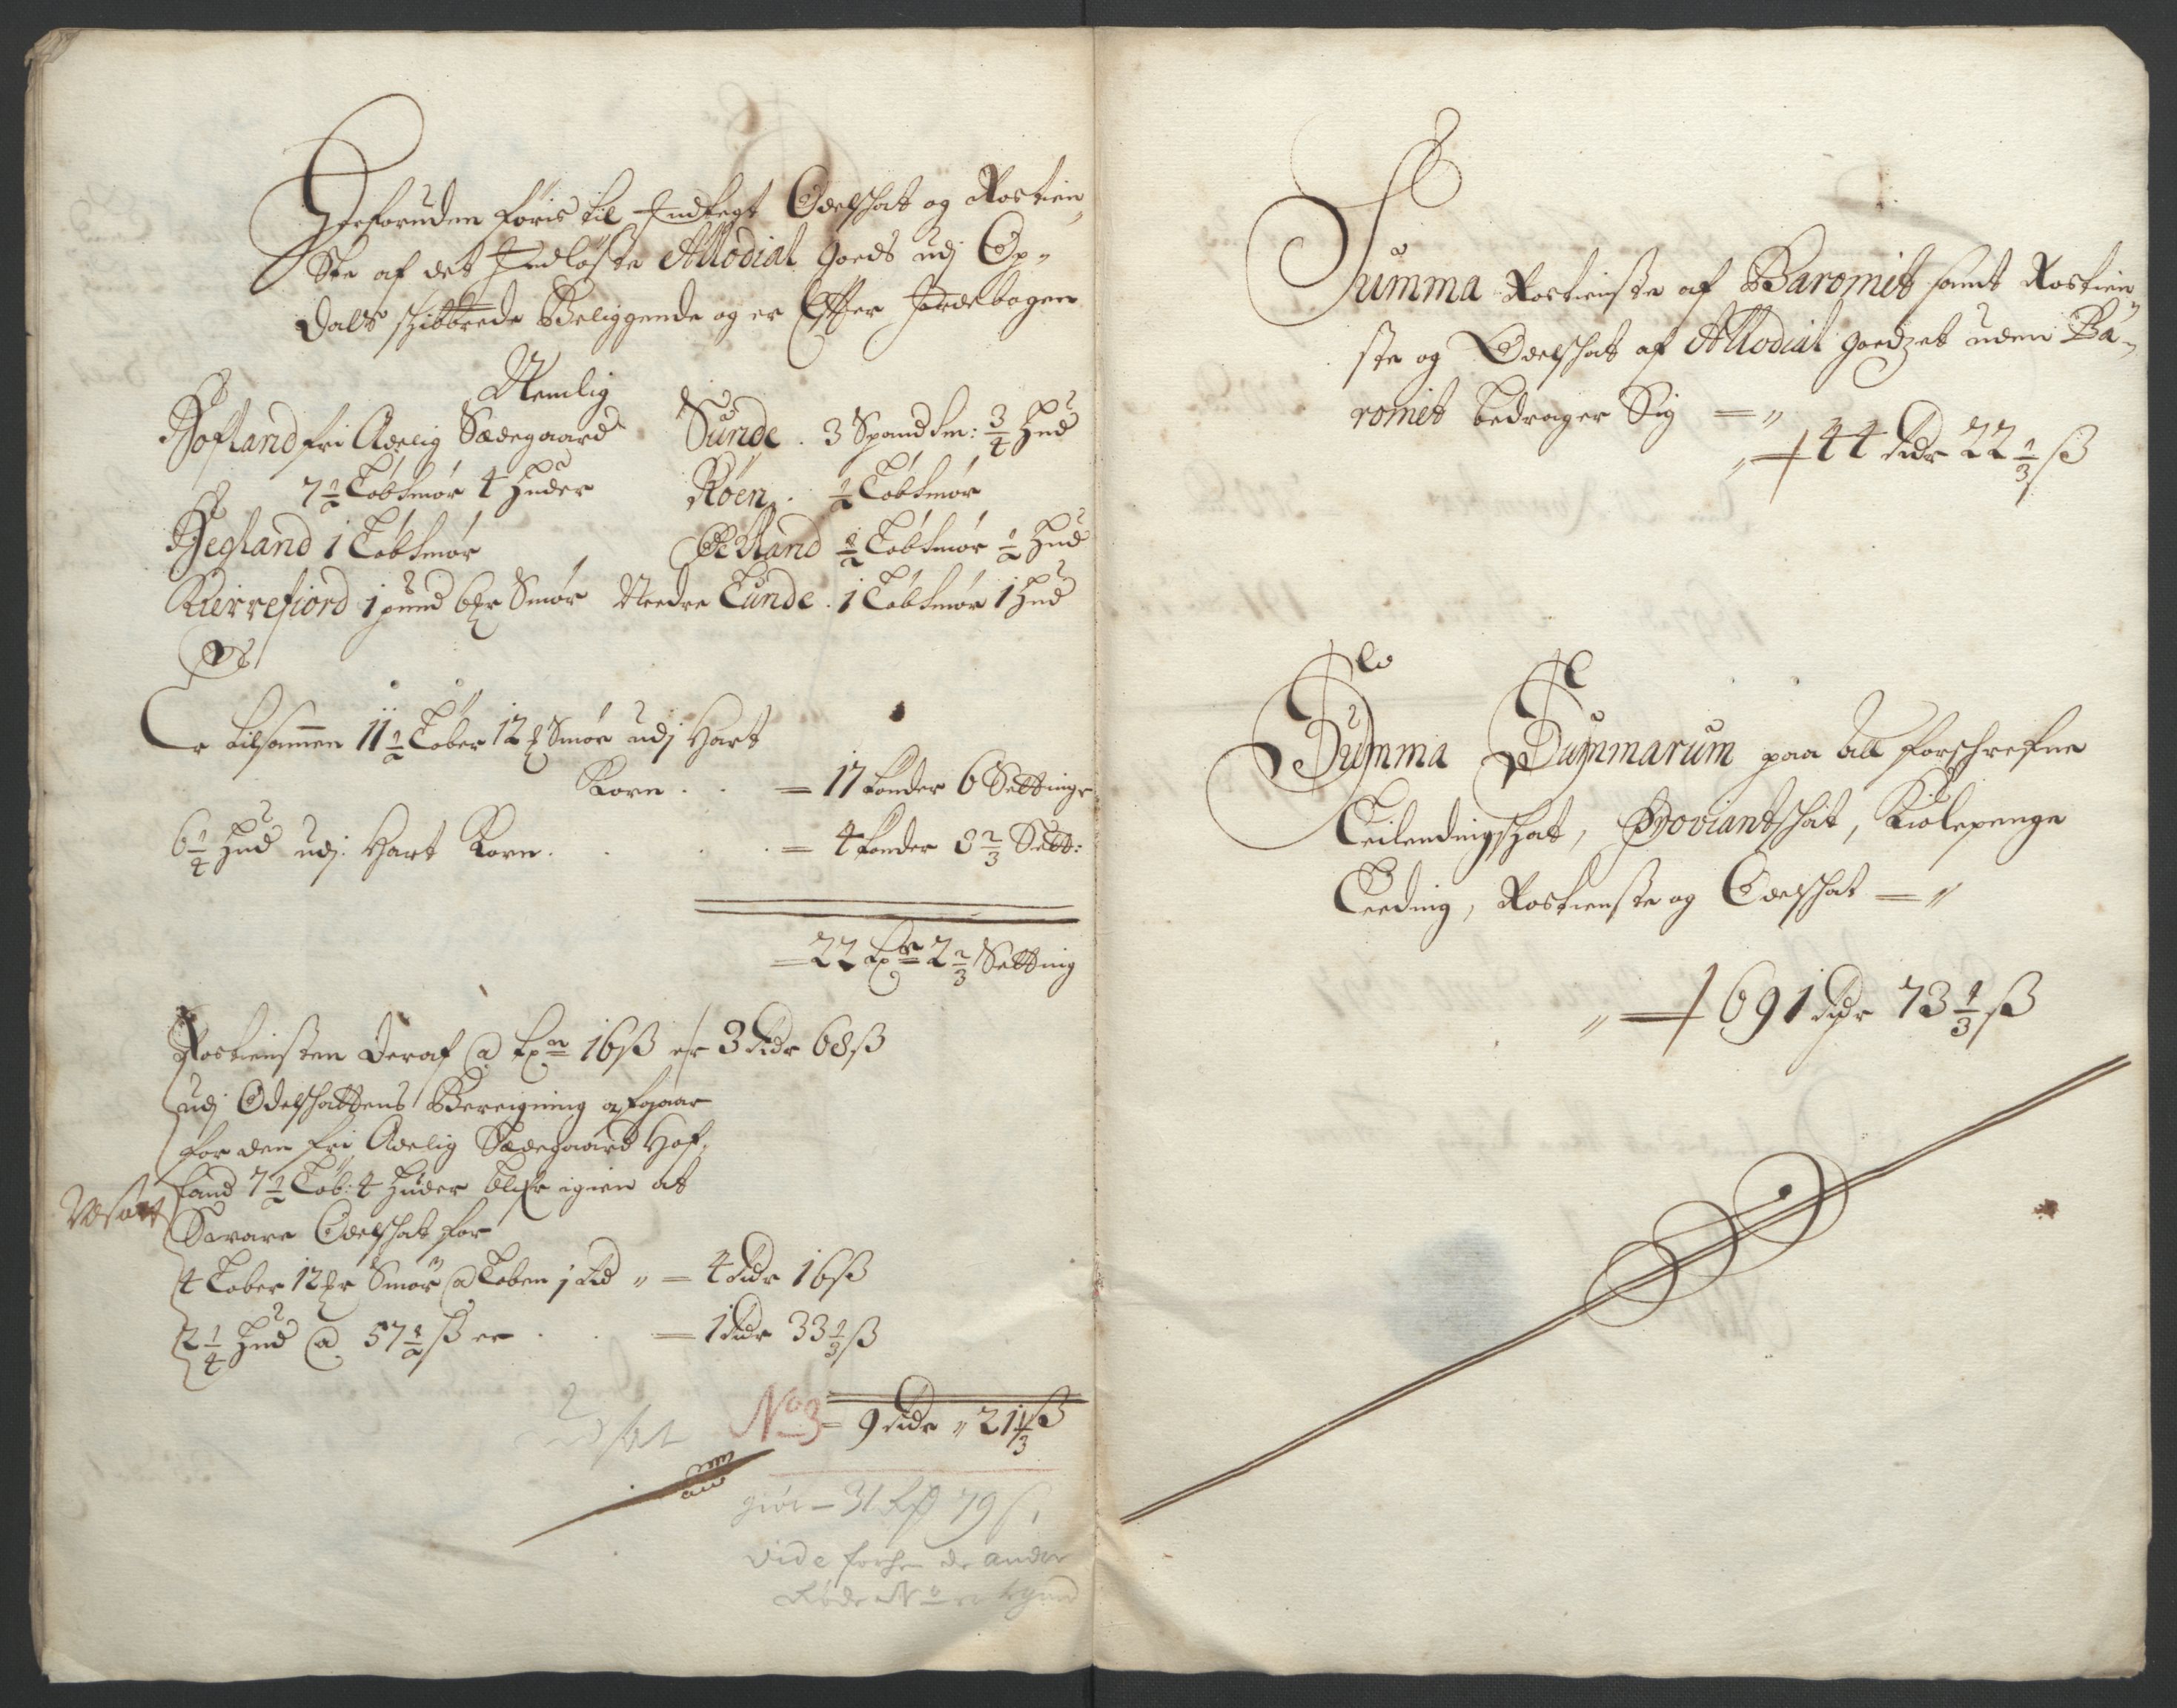 Herforuden føris til Indtegt Odelschat og Rostien„
ste af det Indløste Allodial goeds udj Op„
dals schibbrede Beliggende og er Effter Jordebogen
Nemlig
Hofland fri Adelig Sædegaard
7 1/2 Løb Smør 4 Huder
Hegland 1 Løb Smør
Kierrefiord 1 pund 6 ℔r Smør
Sunde . 3 Spand Sm: 3/4 Hud
Røen . 1/2 Løb Smør
1/2 Løb Smør 1/2 Hud
Nedre Lunde . 1 Løb Smør 1 Hud
Er tilsamen 11 1/2 Løber 12 ℔ Smør udj Hart
Korn . . = 17 tønder 6 Settingr
6 1/4 Hud udj Hart Korn . . . = 4 tønder 8 2/3 Sett:
= 22 tr 2 2/3 Setting
Rostiensten deraf @ tøn 16 ß er 3 Rdr 68 ß
udj Odelschattens Bereigning afgaar
for den fri Adelig Sædegaard Hof„
land 7 1/2 Løb: 4 Huder blifr igien at
Svare Odelschat for
4 Løber 12 ℔r Smør @ Løben 1 Rd „ = 4 Rdr 16 ß
2 1/4 Hud @ 57 1/2 ß er . . = 1 Rdr 33 1/3 ß
No 3 = 9 Rdr „ 21 1/3 ß
giør – 31 Rd 79 ß
vide de andre
Røde No
Summa Rostienste af Baroniet samt Rostien„
ste og Odelschat af Allodial goedzet uden Ba„
roniet bedrager Sig = „
„ = 44 Rdr 22 1/3 ß
Summa Summarum paa all forschrefne
Leilendingschat, Proviantschat, Kiølepenge
Leeding, Rostienste og Odelschat = „
„ = 691 Rdr 73 1/3 ß